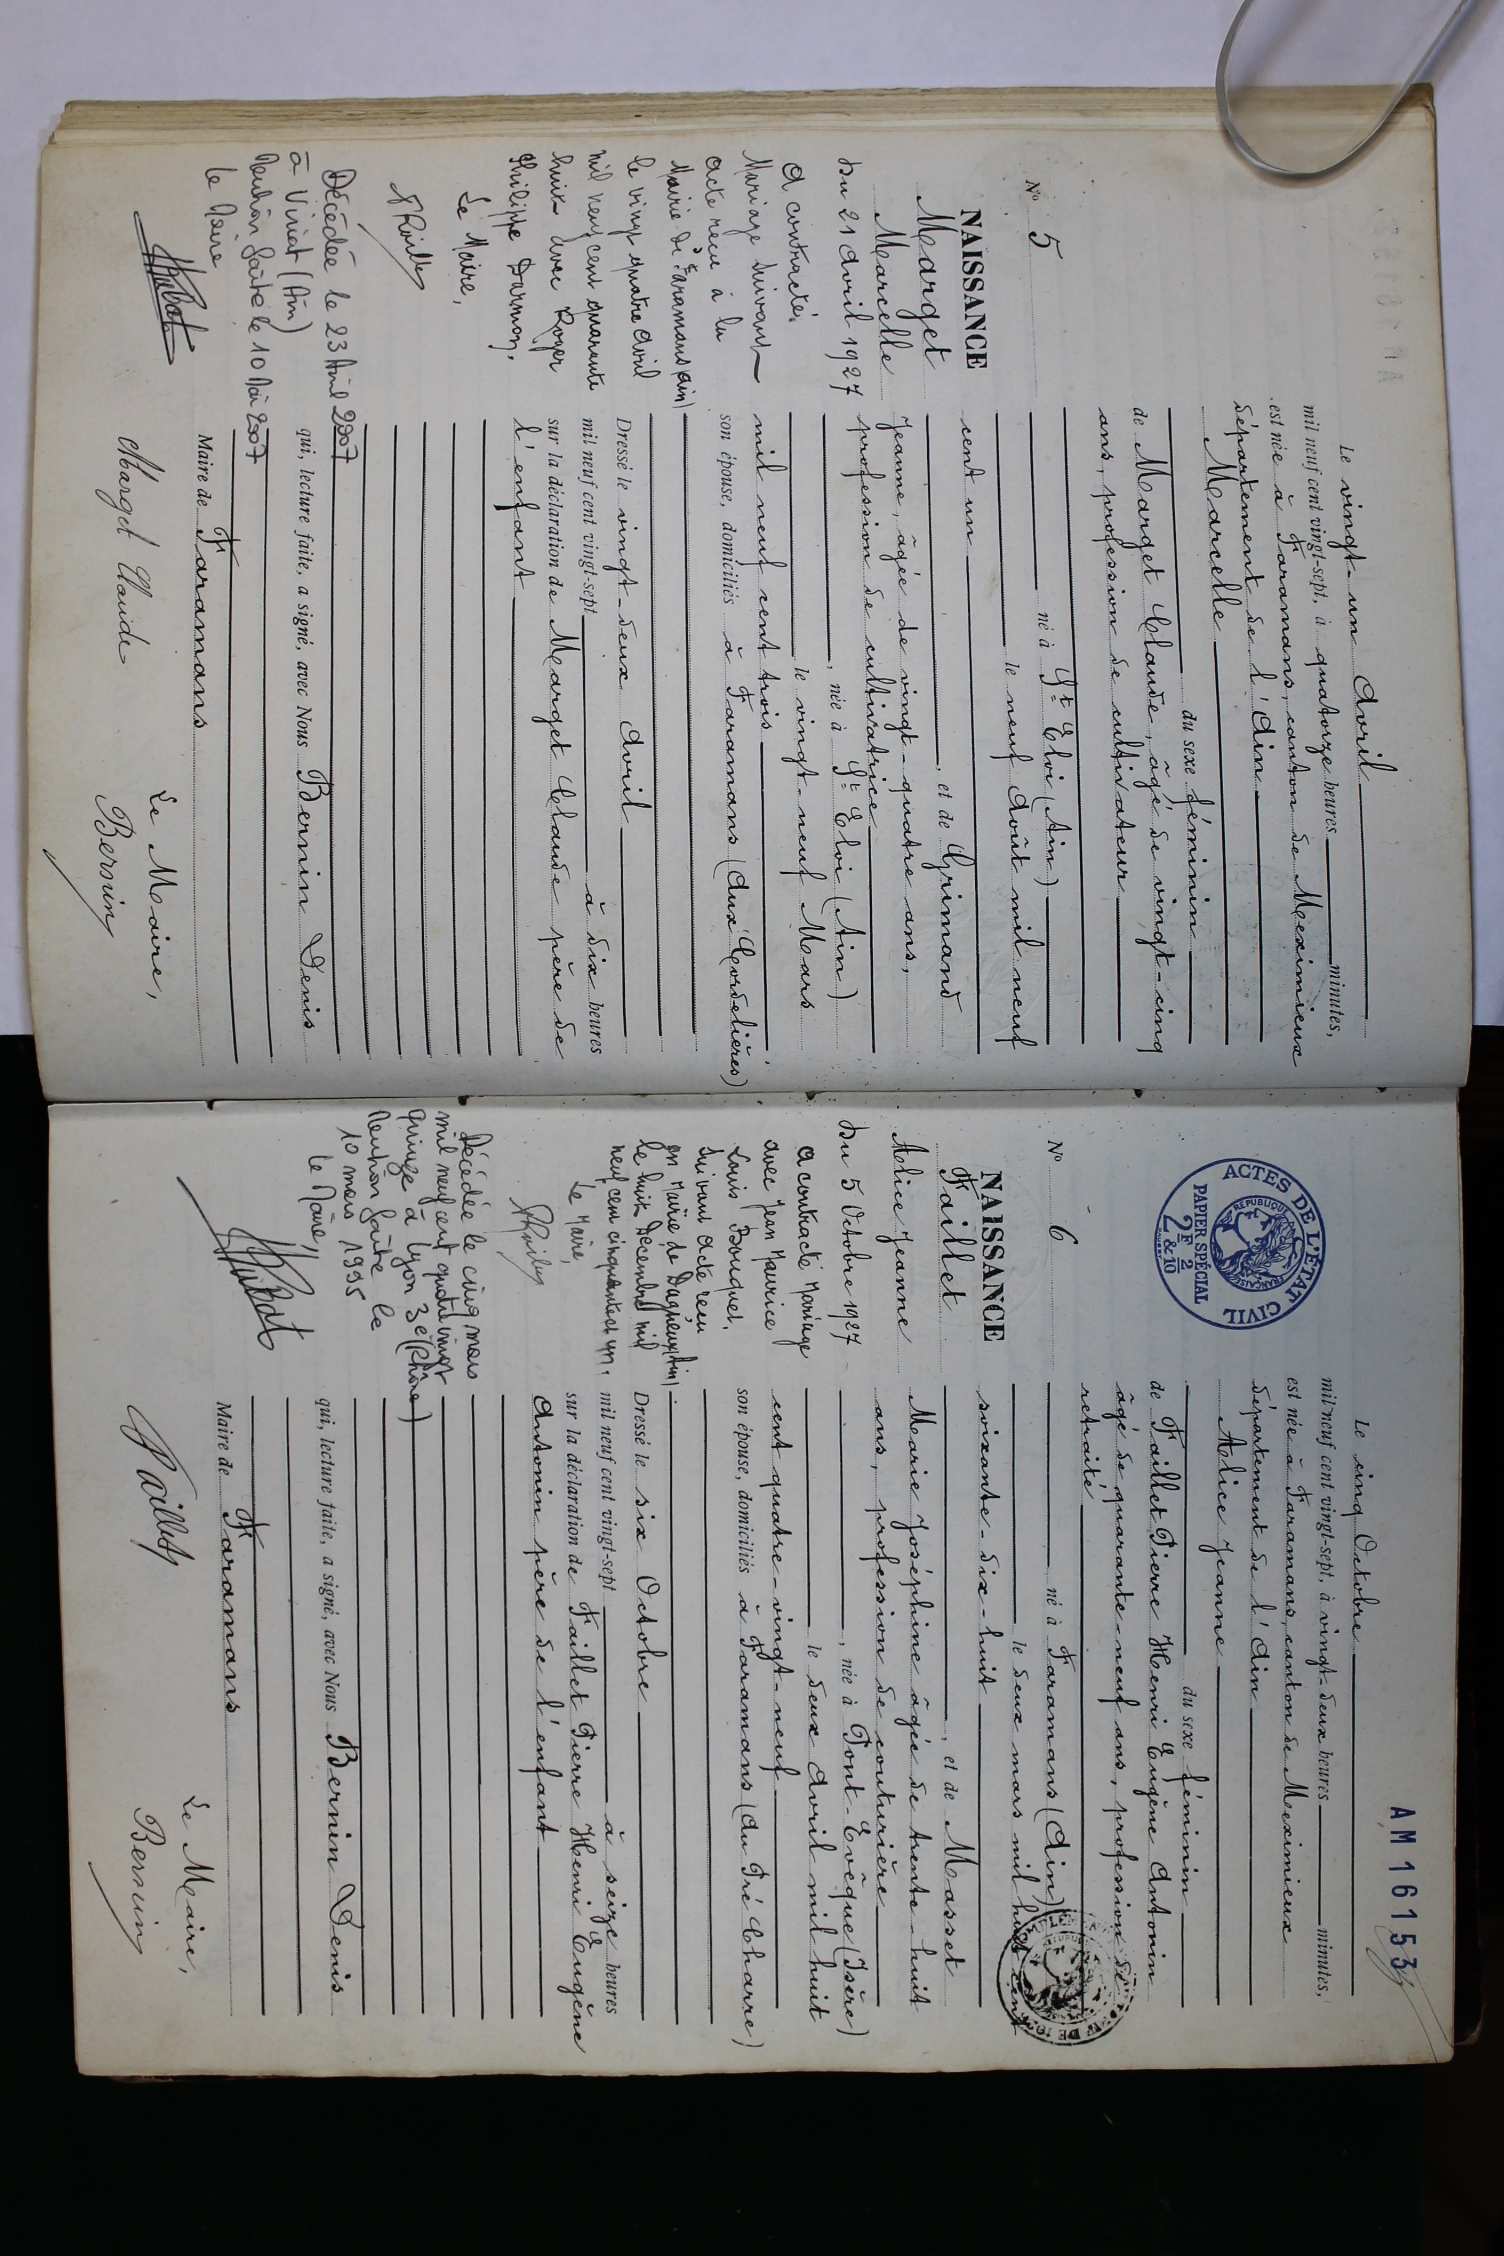 N° 5
NAISSANCE
Marget
Marcelle
Du 21 Avril 1927
A contracté
Mariage suivant
acte recu à la
Mairie de Faramans (Ain)
le vingt quatre avril
mil neuf cent quarante
huit avec Roger
Philippe Darmon.
Le Maire,
Décédée le 23 Avril 2007
à Viriat (Ain)
Mention faite le 10 Mai 2007
le Maire
Le vingt-un Avril
mil neuf cent vingt-sept, à quatorze heures minutes,
est née à Faramans, canton de Meximieux
département de l'Ain
Marcelle
du sexe féminin
de Marget Claude, âgé de vingt-cinq
ans, profession de cultivateur
né à St Eloi (Ain)
le neuf Août mil neuf
cent un
, et de Grimand
Jeanne, âgée de vingt-quatre ans,
profession de cultivatrice
, née à St Eloi (Ain)
le vingt-neuf Mars
mil neuf cent trois
son épouse, domiciliés à Faramans (Aux Cordelières)
Dressé le vingt-deux Avril
mil neuf cent vingt-sept à dix heures
sur la déclaration de Marget Claude père de
l'enfant
qui, lecture faite, a signé, avec Nous Bernin Denis
Maire de Faramans
Le Maire,
Marget Claude
Bernin
ACTES DE L'ÉTAT CIVIL
RÉPUBLIQUE FRANÇAISE
PAPIER SPÉCIAL
2F & 2/10
AM 16153
N° 6
NAISSANCE
Faillet
Alice Jeanne
Du 5 Octobre 1927
A contracté Mariage
avec Jean Maurice
Louis Bouquet,
suivant acte recu
en Mairie de Dagneux (Ain)
le huit Décembre mil
neuf cent cinquante et un.
Le Maire,
Décédée le cinq mars
mil neuf cent quatre vingt
quinze à Lyon 3e (Rhône)
Mention faite le
10 mars 1995
le Maire,
Le cinq Octobre
mil neuf cent vingt-sept, à vingt-deux heures minutes,
est née à Faramans, canton de Meximieux
département de l'Ain
Alice Jeanne
du sexe féminin
de Faillet Pierre Henri Eugène Antonin
âgé de quarante-neuf ans, profession de
retraité
né à Faramans (Ain)
le deux mars mil huit cent
soixante-dix-huit
, et de Masset
Marie Joséphine âgée de trente-huit
ans, profession de couturière
, née à Pont-Evêque (Isère)
le deux Avril mil huit
cent quatre-vingt-neuf
son épouse, domiciliés à Faramans (Au Pré Charre)
Dressé le six Octobre
mil neuf cent vingt-sept à seize heures
sur la déclaration de Faillet Pierre Henri Eugène
Antonin père de l'enfant
qui, lecture faite, a signé, avec Nous Bernin Denis
Maire de Faramans
Le Maire,
Faillet
Bernin